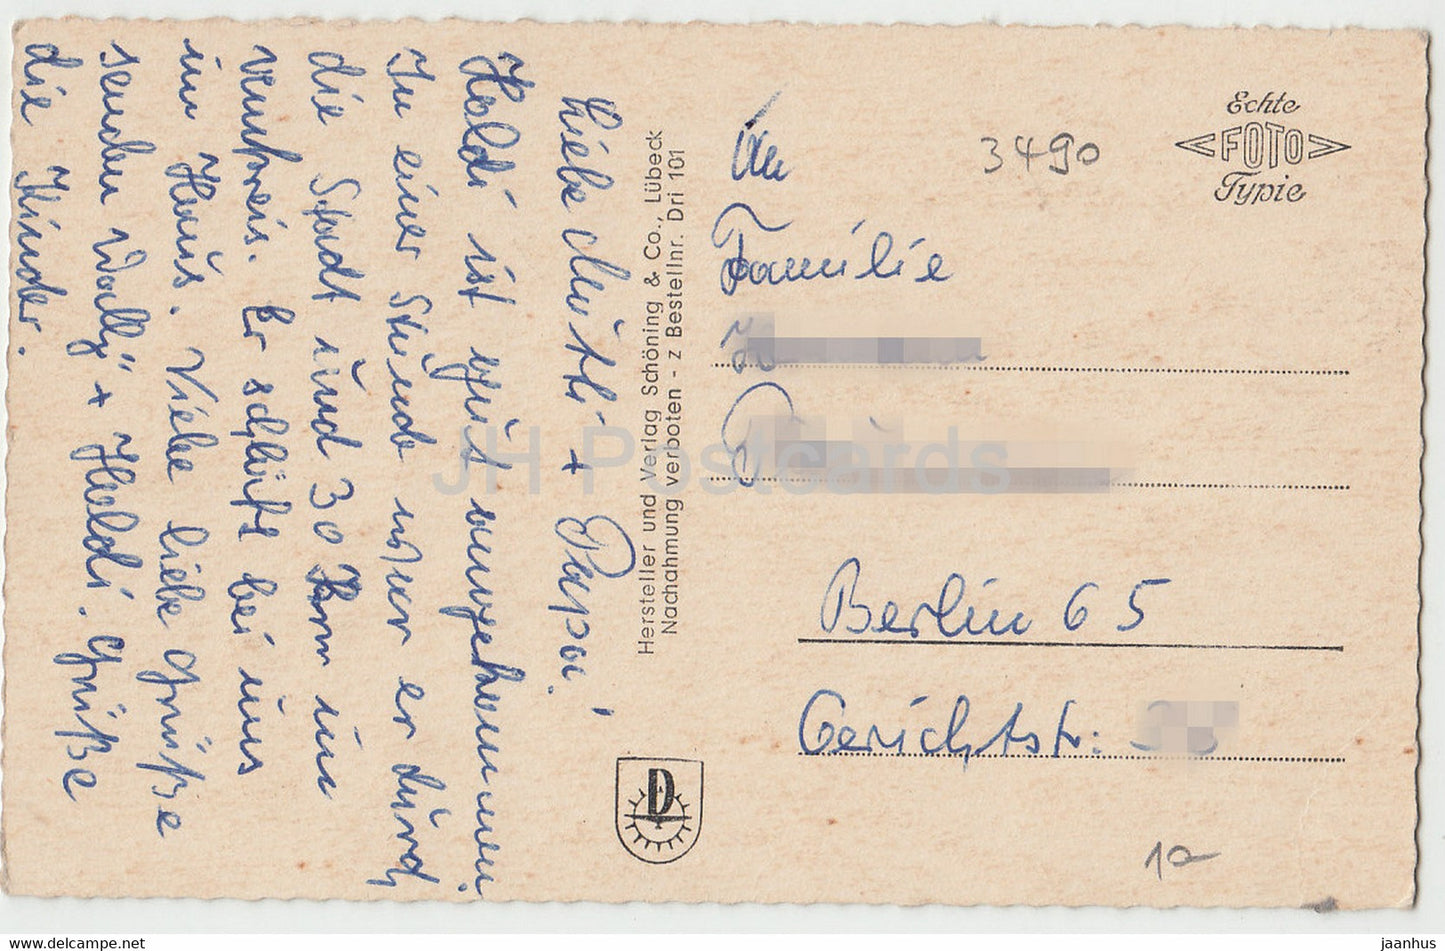 Liebe Mutti + Papa!
Holdi ist gut angekommen.
In einer Stunde war er durch
die Stadt und 30 km im
Umkreis. Er schläft bei uns
im Haus. Viele liebe Grüße
senden Wally + Holdi. Grüße
die Kinder.
Hersteller und Verlag Schöning & Co., Lübeck
Nachahmung verboten - z Bestellnr. Dri 101
D
Echte
FOTO
Typie
3490
An
Familie
Berlin 65
Gerichtstr:
10
JH Postcards
delcampe.net
jaanhus